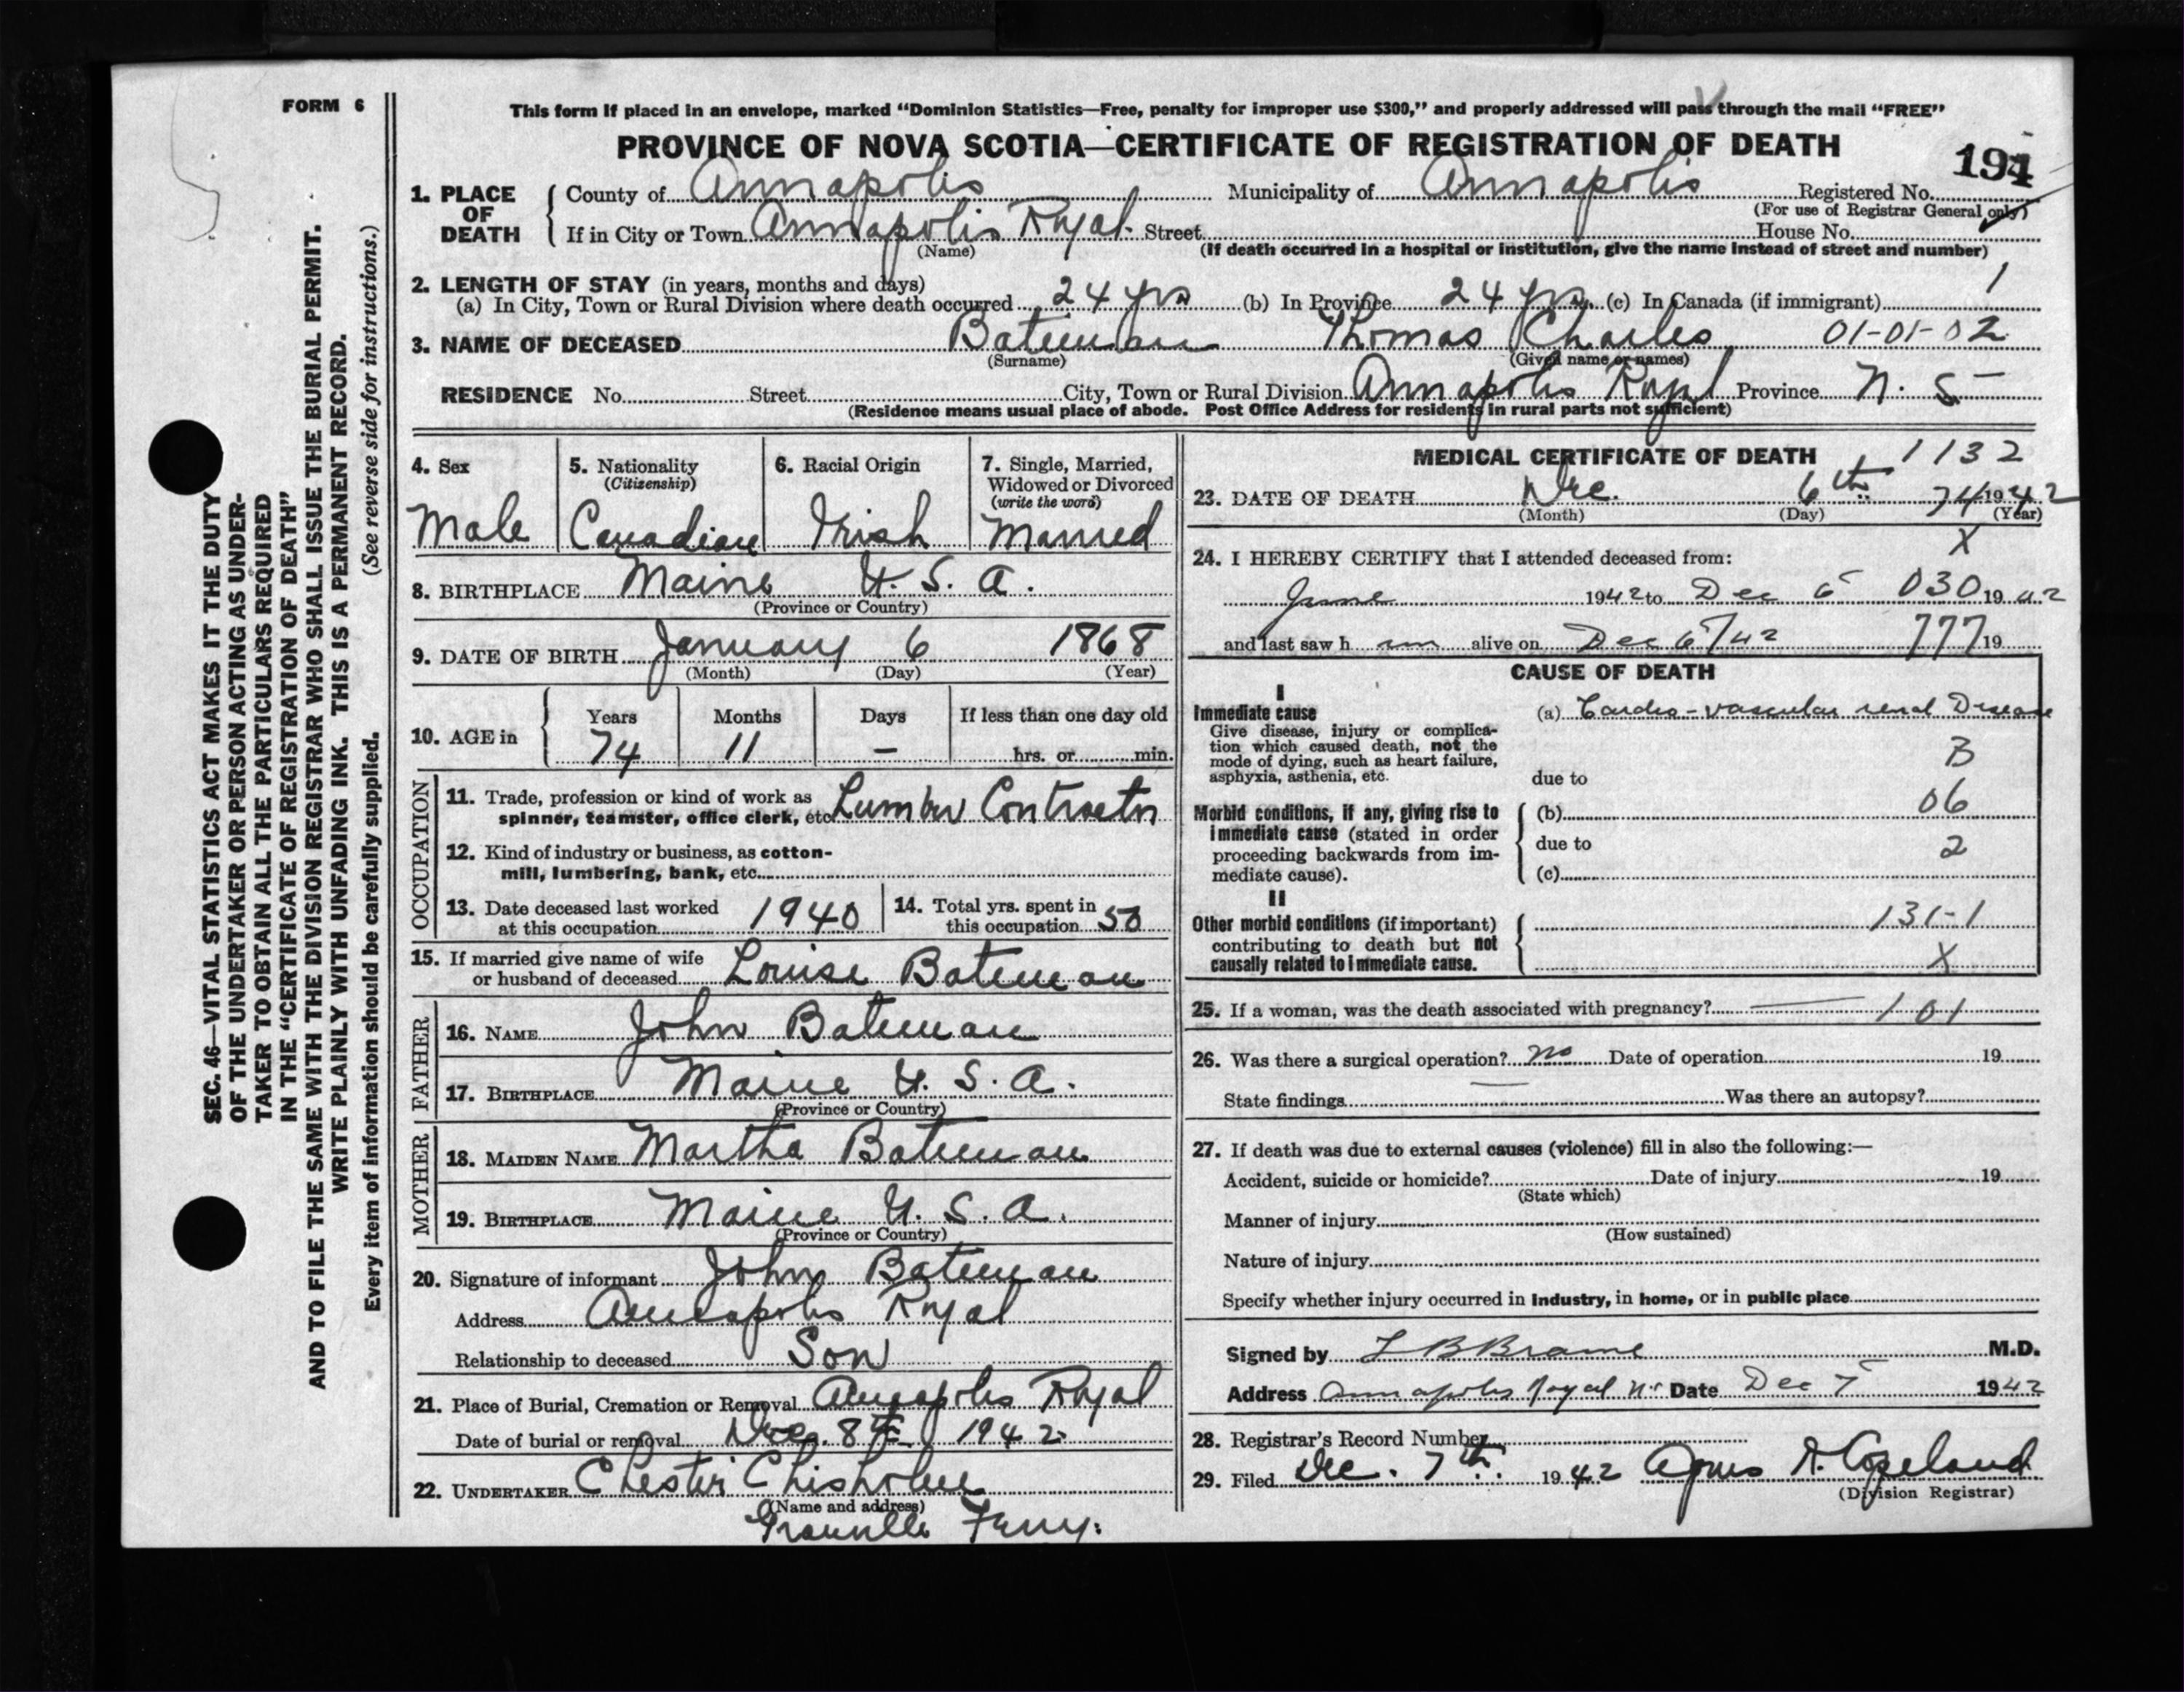 FORM 6
This form if placed in an envelope, marked “Dominion Statistics—Free, penalty for improper use $300,” and properly addressed will pass through the mail “FREE”
PROVINCE OF NOVA SCOTIA—CERTIFICATE OF REGISTRATION OF DEATH
194
1. PLACE OF DEATH
County of Annapolis Municipality of Annapolis Registered No.
(For use of Registrar General only)
If in City or Town Annapolis Royal Street House No.
(Name) (If death occurred in a hospital or institution, give the name instead of street and number)
2. LENGTH OF STAY (in years, months and days)
(a) In City, Town or Rural Division where death occurred 24 yrs (b) In Province 24 yrs (c) In Canada (if immigrant) 1
3. NAME OF DECEASED Bateman Thomas Charles 01-01-02
(Surname) (Given name or names)
RESIDENCE No. Street City, Town or Rural Division Annapolis Royal Province N. S
(Residence means usual place of abode. Post Office Address for residents in rural parts not sufficient)
4. Sex
Male
5. Nationality
(Citizenship)
Canadian
6. Racial Origin
Irish
7. Single, Married,
Widowed or Divorced
(write the word)
Married
8. BIRTHPLACE Maine U. S. A.
(Province or Country)
9. DATE OF BIRTH January 6 1868
(Month) (Day) (Year)
10. AGE in
Years Months Days If less than one day old
74 11 — hrs. or min.
OCCUPATION
11. Trade, profession or kind of work as
spinner, teamster, office clerk, etc. Lumber Contractor
12. Kind of industry or business, as cotton-
mill, lumbering, bank, etc.
13. Date deceased last worked
at this occupation 1940
14. Total yrs. spent in
this occupation 50
15. If married give name of wife
or husband of deceased Louise Bateman
FATHER
16. NAME John Bateman
17. BIRTHPLACE Maine U. S. A.
(Province or Country)
MOTHER
18. MAIDEN NAME Martha Bateman
19. BIRTHPLACE Maine U. S. A.
(Province or Country)
20. Signature of informant John Bateman
Address Annapolis Royal
Relationship to deceased Son
21. Place of Burial, Cremation or Removal Annapolis Royal
Date of burial or removal Dec. 8th 1942
22. UNDERTAKER Chester Chisholm
(Name and address)
Granville Ferry.
MEDICAL CERTIFICATE OF DEATH 1132
23. DATE OF DEATH Dec. 6th 74 1942
(Month) (Day) (Year)
X
24. I HEREBY CERTIFY that I attended deceased from:
June 1942 to Dec 6 030 1942
and last saw h im alive on Dec 6/42 777 19
CAUSE OF DEATH
I
Immediate cause
Give disease, injury or complica-
tion which caused death, not the
mode of dying, such as heart failure,
asphyxia, asthenia, etc.
(a) Cardio-vascular renal Disease
B
due to
Morbid conditions, if any, giving rise to
immediate cause (stated in order
proceeding backwards from im-
mediate cause).
(b) 06
due to 2
(c)
II
Other morbid conditions (if important)
contributing to death but not
causally related to immediate cause.
131-1
X
25. If a woman, was the death associated with pregnancy? — 101
26. Was there a surgical operation? no Date of operation 19
State findings — Was there an autopsy?
27. If death was due to external causes (violence) fill in also the following:—
Accident, suicide or homicide? Date of injury 19
(State which)
Manner of injury
(How sustained)
Nature of injury
Specify whether injury occurred in industry, in home, or in public place
Signed by L B Brame M.D.
Address Annapolis Royal Ns Date Dec 7 1942
28. Registrar's Record Number
29. Filed Dec. 7th. 1942 Agnes A. Copeland
(Division Registrar)
SEC. 46—VITAL STATISTICS ACT MAKES IT THE DUTY
OF THE UNDERTAKER OR PERSON ACTING AS UNDER-
TAKER TO OBTAIN ALL THE PARTICULARS REQUIRED
IN THE “CERTIFICATE OF REGISTRATION OF DEATH”
AND TO FILE THE SAME WITH THE DIVISION REGISTRAR WHO SHALL ISSUE THE BURIAL PERMIT.
WRITE PLAINLY WITH UNFADING INK. THIS IS A PERMANENT RECORD.
Every item of information should be carefully supplied. (See reverse side for instructions.)